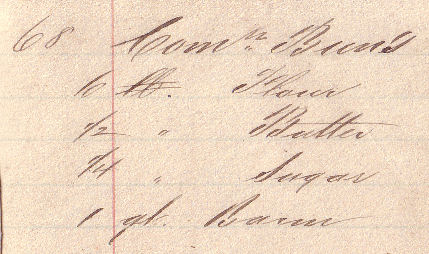 68 Comn Buns
6 lb. Flour
1/2 " Butter
1/4 " Sugar
1 qt. Barm